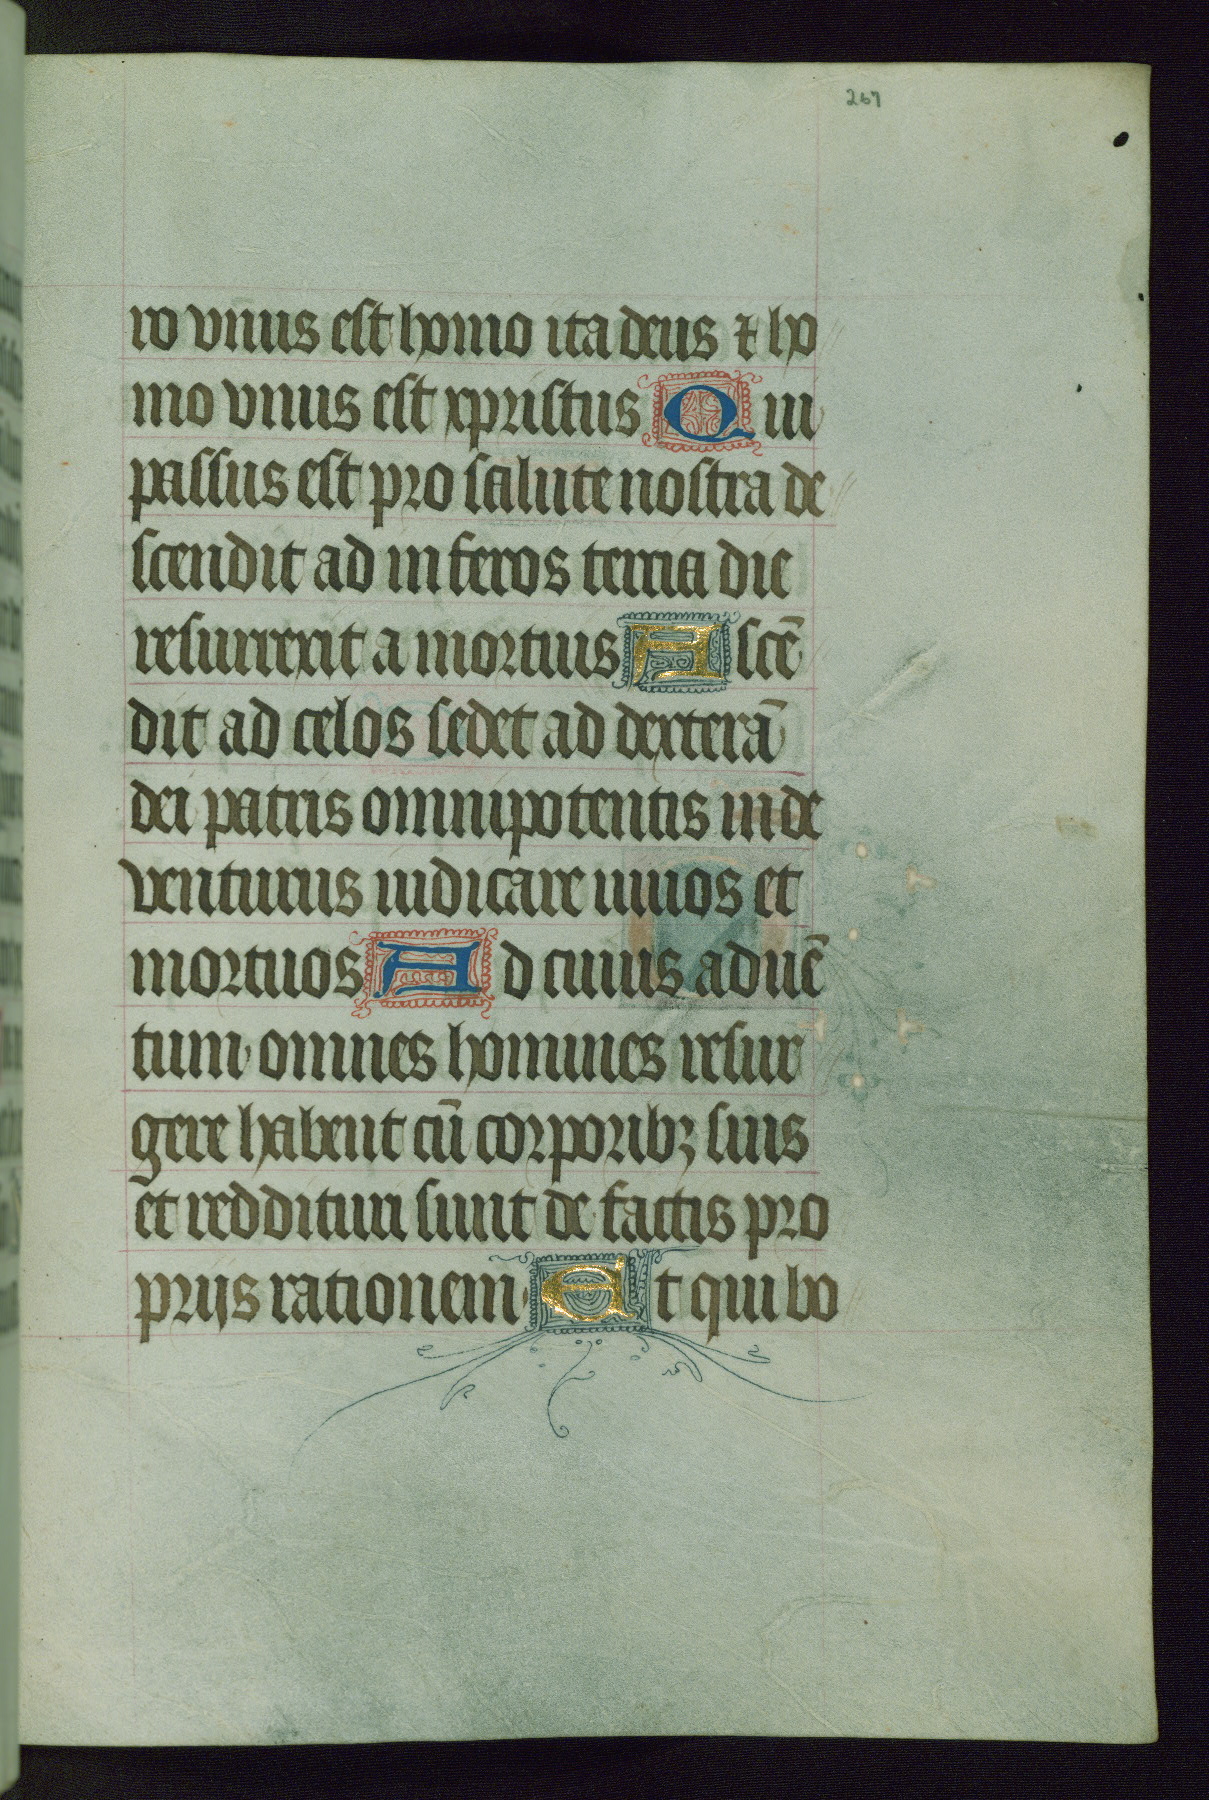 267
ro vnus est homo ita deus ⁊ ho
mo vnus est xpristus Qui
passus est pro salute nostra de
scendit ad inferos tercia die
resurrexit a mortuis Ascē
dit ad celos sedet ad dexterā
dei patris omnipotentis inde
venturus iudicare uiuos et
mortuos Ad cuius aduē
tum omnes homines resur
gere habent cū corporibꝫ suis
et reddituri sunt de factis pro
prijs rationem Et qui bo